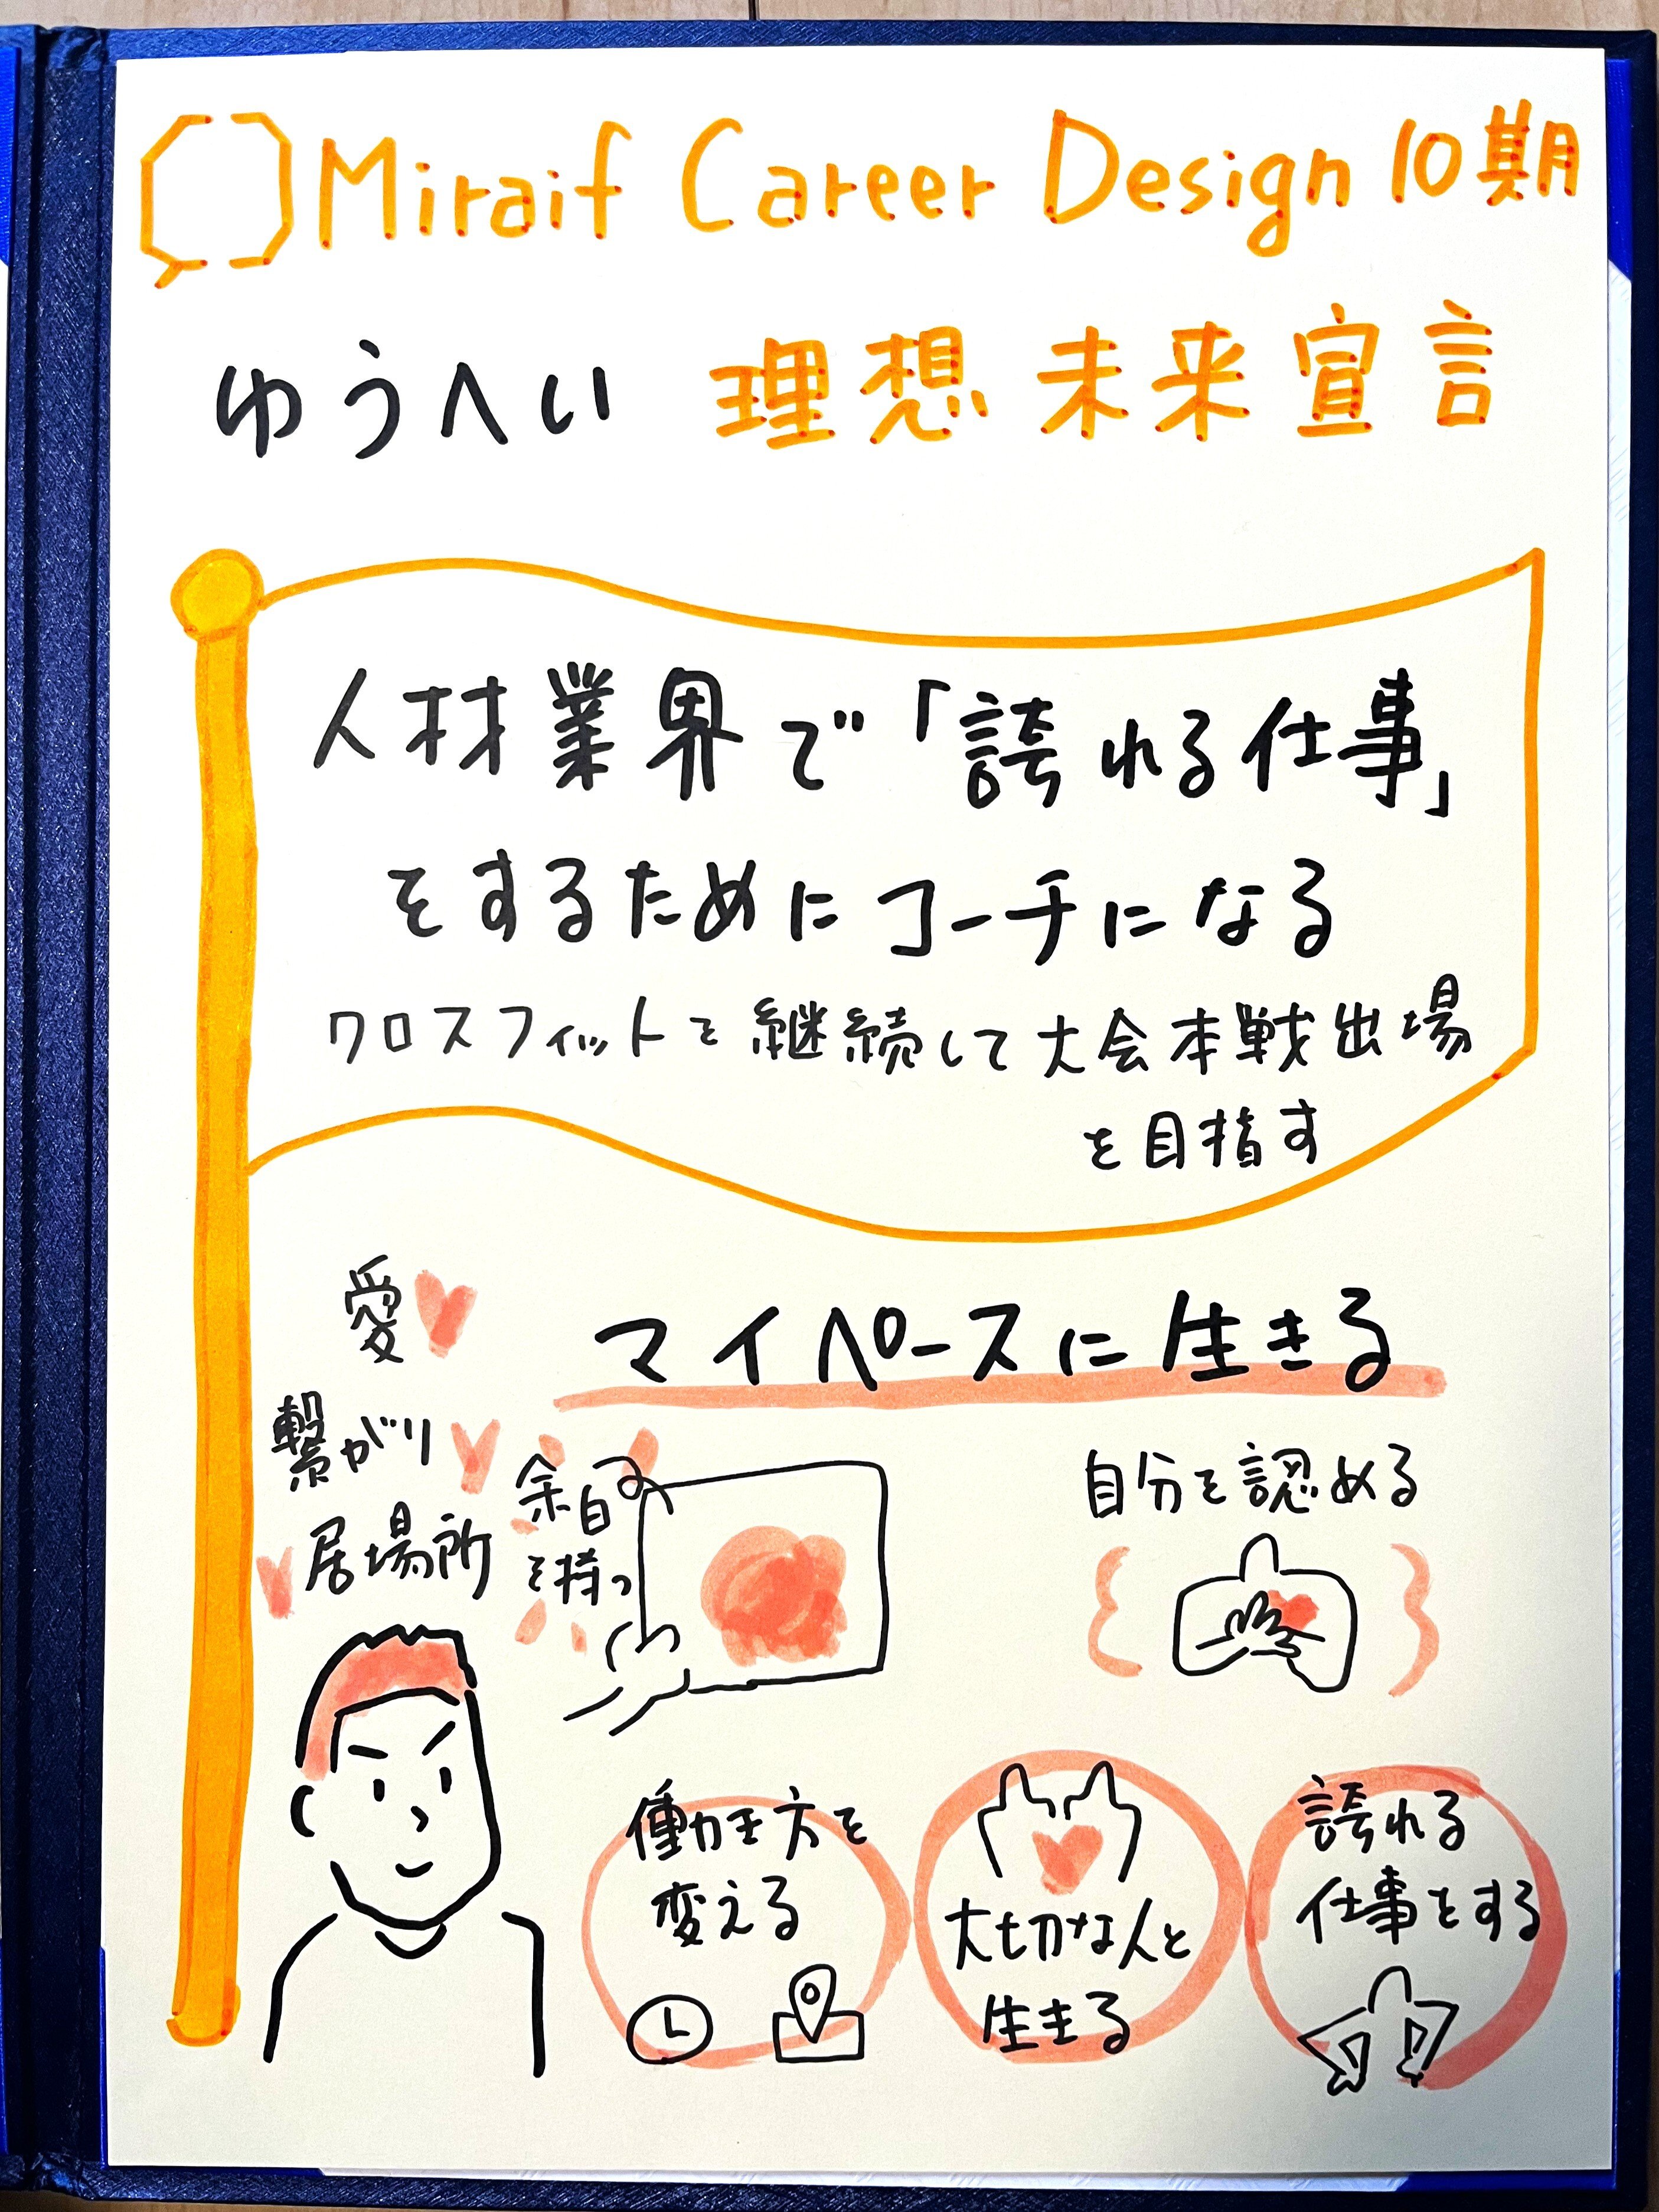 Miraif Career Design 10期
ゆうへい 理想未来宣言
人材業界で「誇れる仕事」
をするためにコーチになる
クロスフィットを継続して大会本戦出場
を目指す
愛
繋がり
居場所
マイペースに生きる
余白
を持つ
自分を認める
働き方を
変える
大切な人と
生きる
誇れる
仕事をする